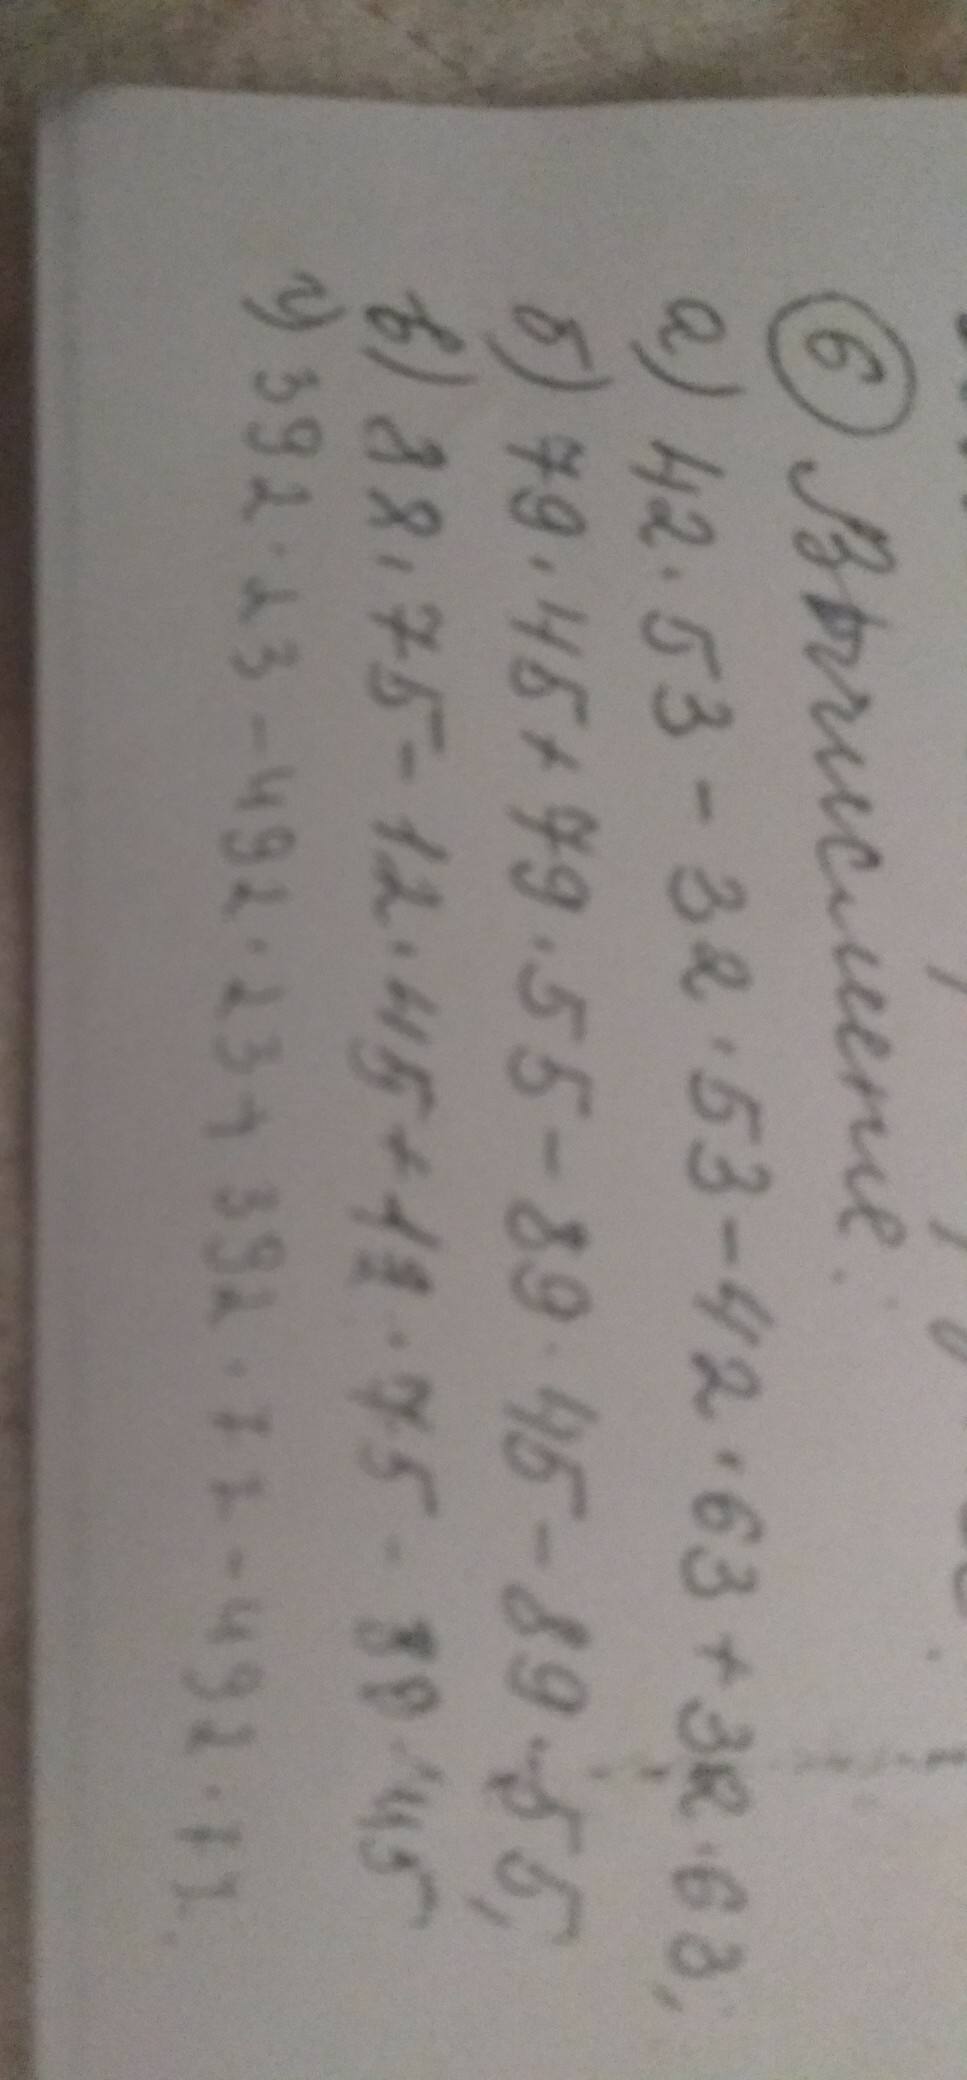 6 Вычисление:
а) 42·53-32·53-42·63+32·63,
б) 79·45+79·55-89·45-89·55,
в) 88·75-12·45+12·75-88·45
г) 392·23-492·23+392·77-492·77.